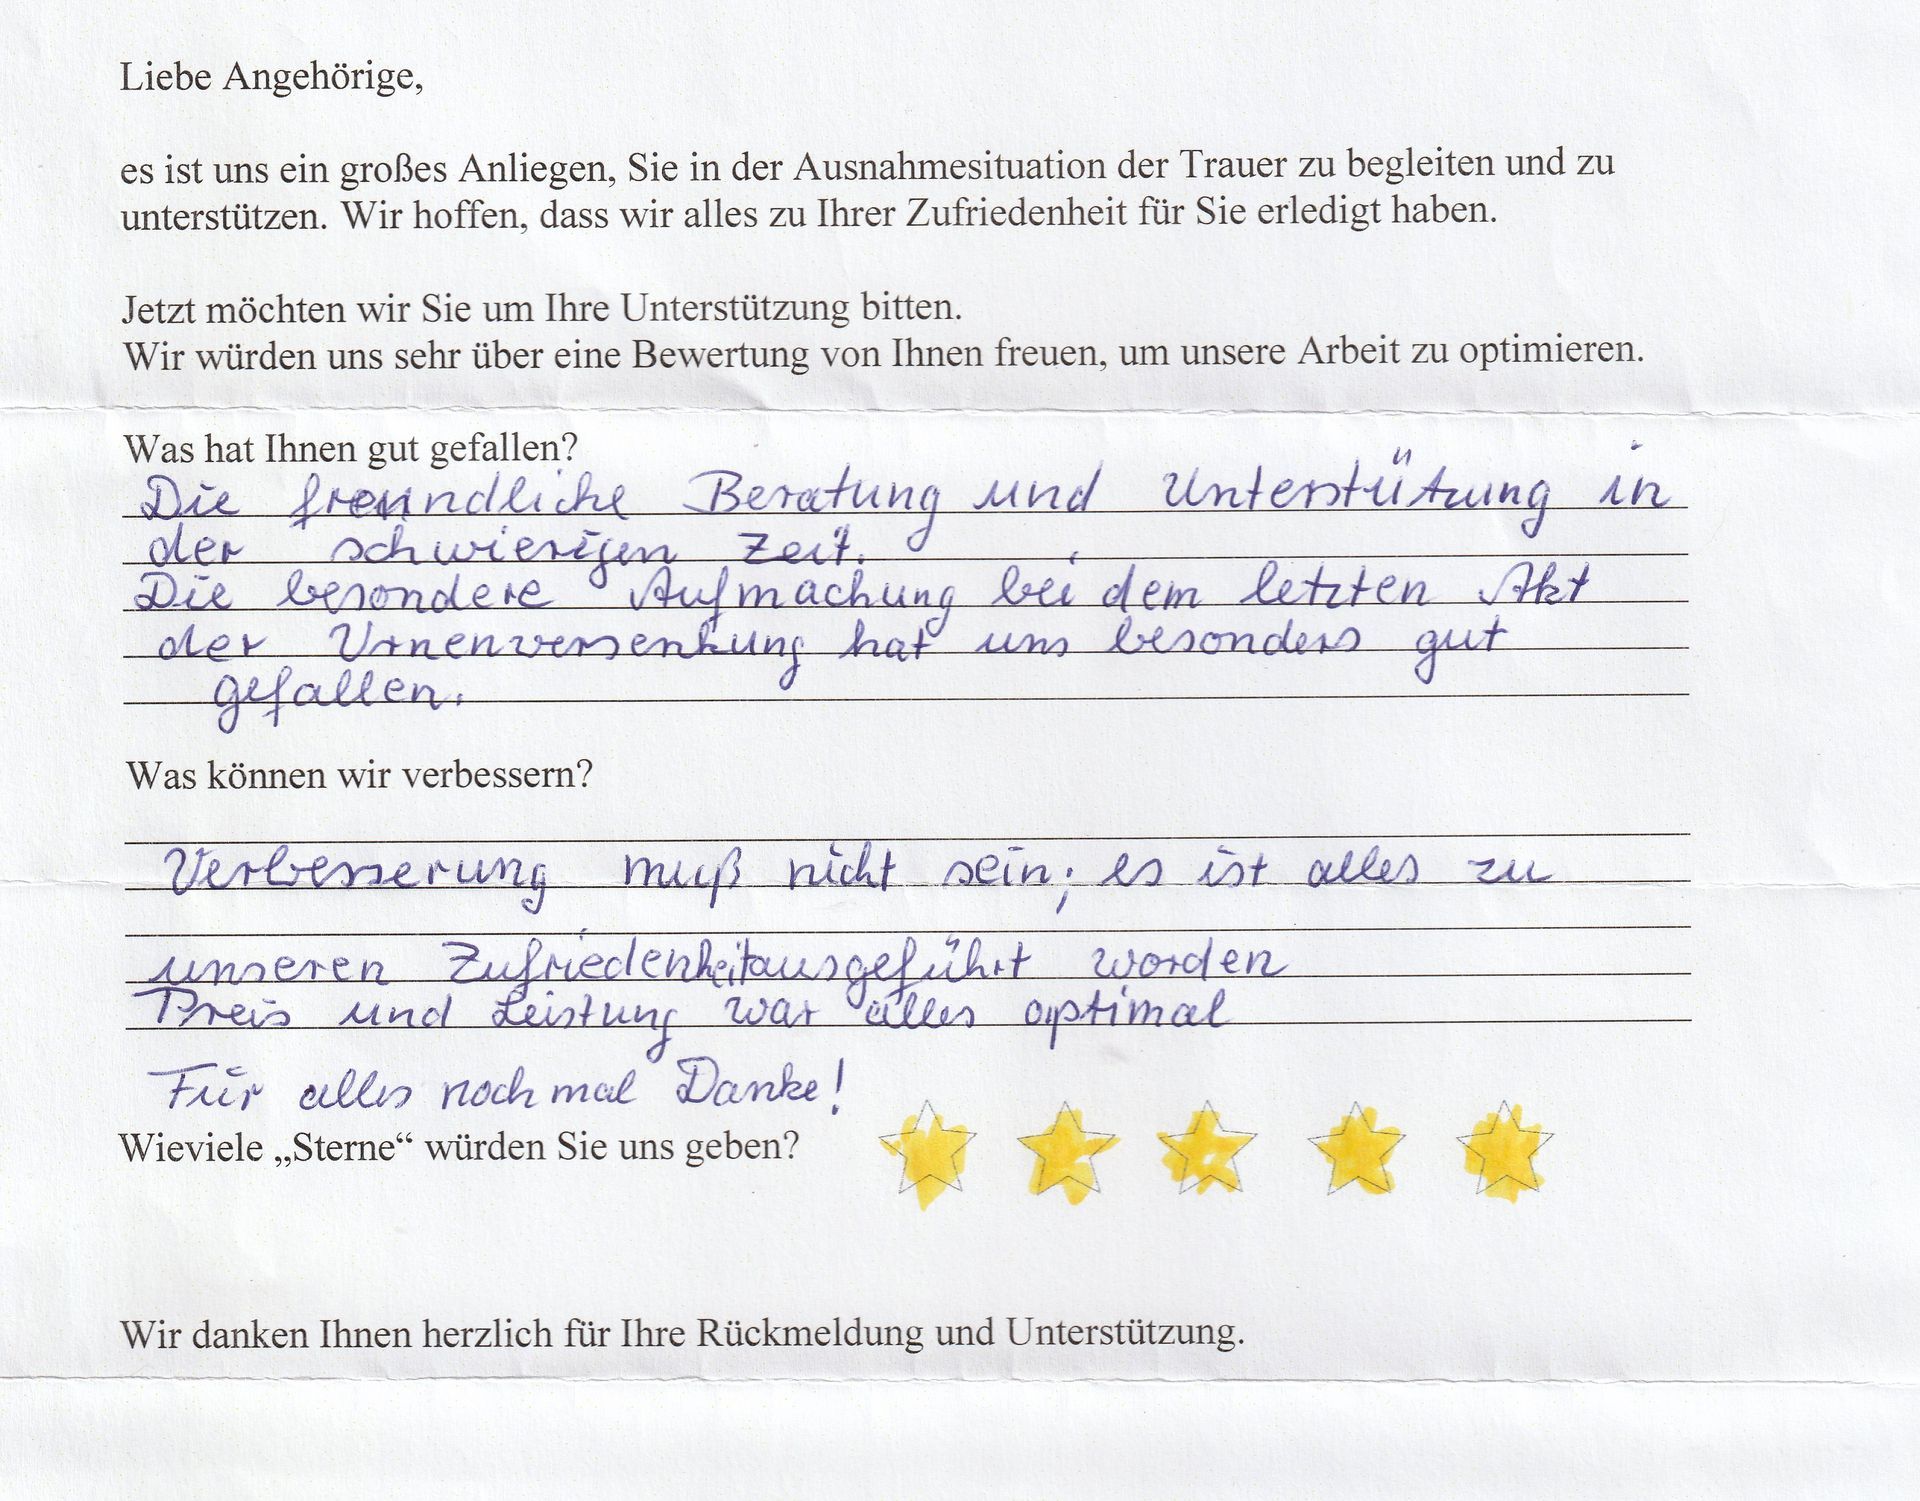 Liebe Angehörige,
es ist uns ein großes Anliegen, Sie in der Ausnahmesituation der Trauer zu begleiten und zu
unterstützen. Wir hoffen, dass wir alles zu Ihrer Zufriedenheit für Sie erledigt haben.
Jetzt möchten wir Sie um Ihre Unterstützung bitten.
Wir würden uns sehr über eine Bewertung von Ihnen freuen, um unsere Arbeit zu optimieren.
Was hat Ihnen gut gefallen?
Die freundliche Beratung und Unterstützung in
der schwierigen Zeit.
Die besondere Aufmachung bei dem letzten Akt
der Urnenversenkung hat uns besonders gut
gefallen.
Was können wir verbessern?
Verbesserung muß nicht sein; es ist alles zu
unseren Zufriedenheit ausgeführt worden
Preis und Leistung war alles optimal
Für alles nochmal Danke!
Wieviele „Sterne“ würden Sie uns geben?
Wir danken Ihnen herzlich für Ihre Rückmeldung und Unterstützung.